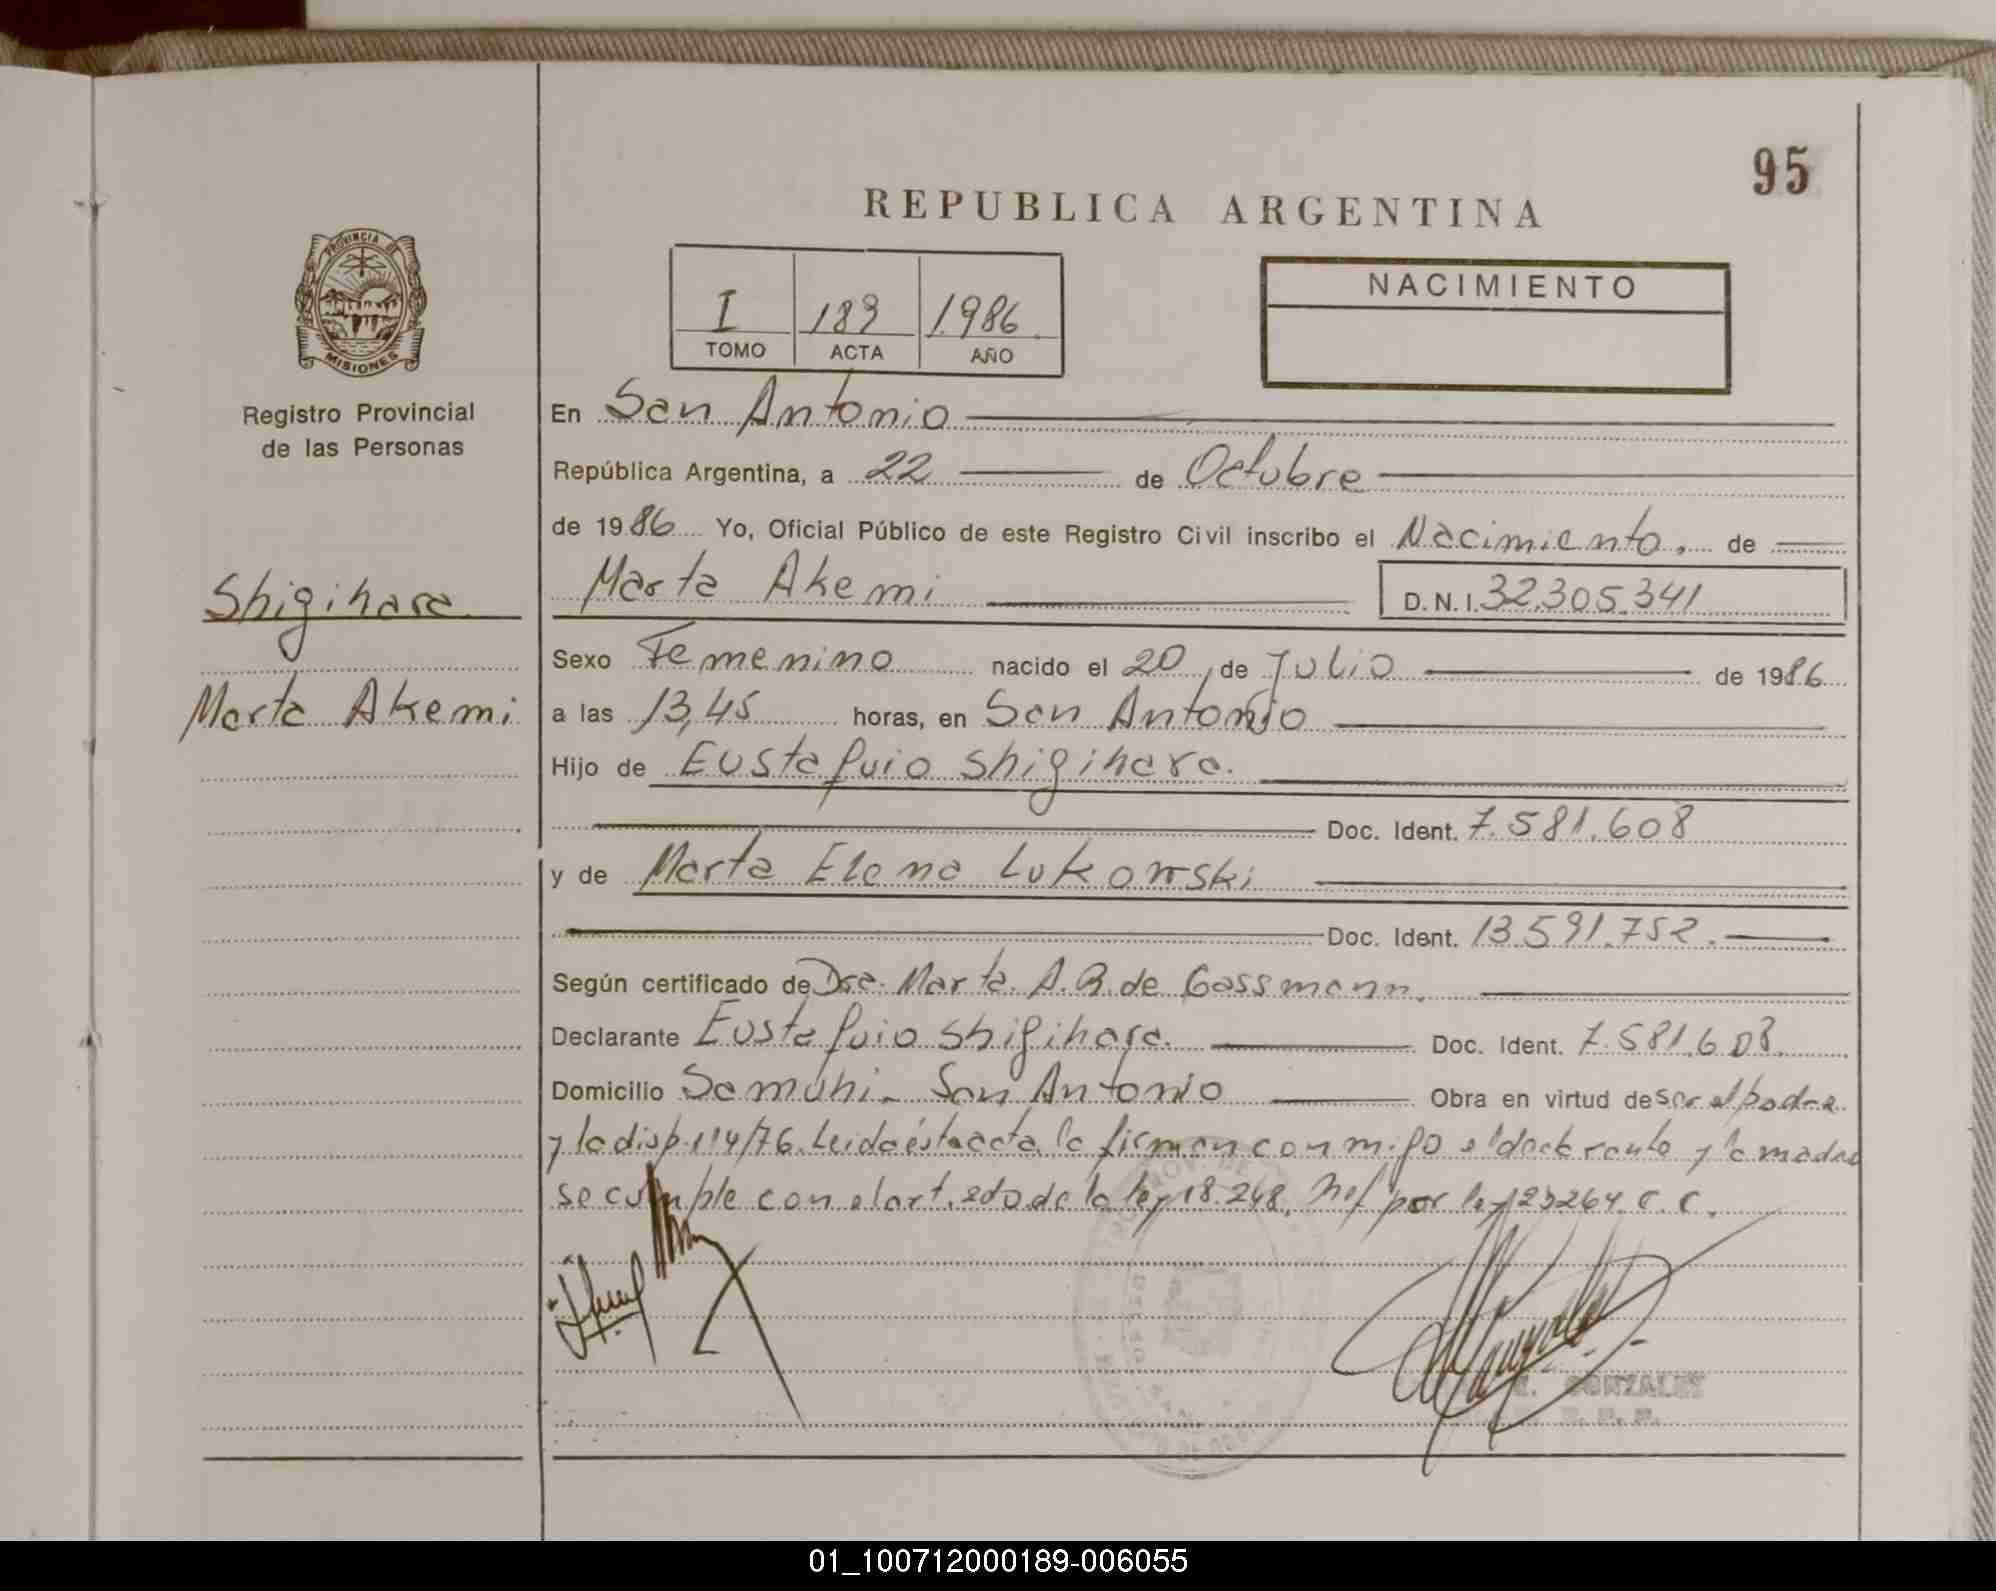 95
REPUBLICA ARGENTINA
PROVINCIA DE
MISIONES
Registro Provincial
de las Personas
I 189 1986
TOMO ACTA AÑO
NACIMIENTO
En San Antonio
República Argentina, a 22 de Octubre
de 1986 Yo, Oficial Público de este Registro Civil inscribo el Nacimiento, de
Marta Akemi D.N.I. 32.305.341
Shigihara
Marta Akemi
Sexo Femenino nacido el 20 de Julio de 1986
a las 13,45 horas, en San Antonio
Hijo de Eustaquio Shigihara.
Doc. Ident. 7.581.608
y de Marta Elena Lukowski
Doc. Ident. 13.591.752.
Según certificado de Dra. Marta A. R. de Gassmann.
Declarante Eustaquio Shigihara. Doc. Ident. 7.581.608.
Domicilio Samuhi - San Antonio Obra en virtud de ser el padre
y la disp. 114/76. Leida ésta acta la firman con migo el declarante y la madre
se cumple con el art. 2do. de la ley 18.248. por ley 23264. C.C.
GONZALEZ
01_100712000189-006055